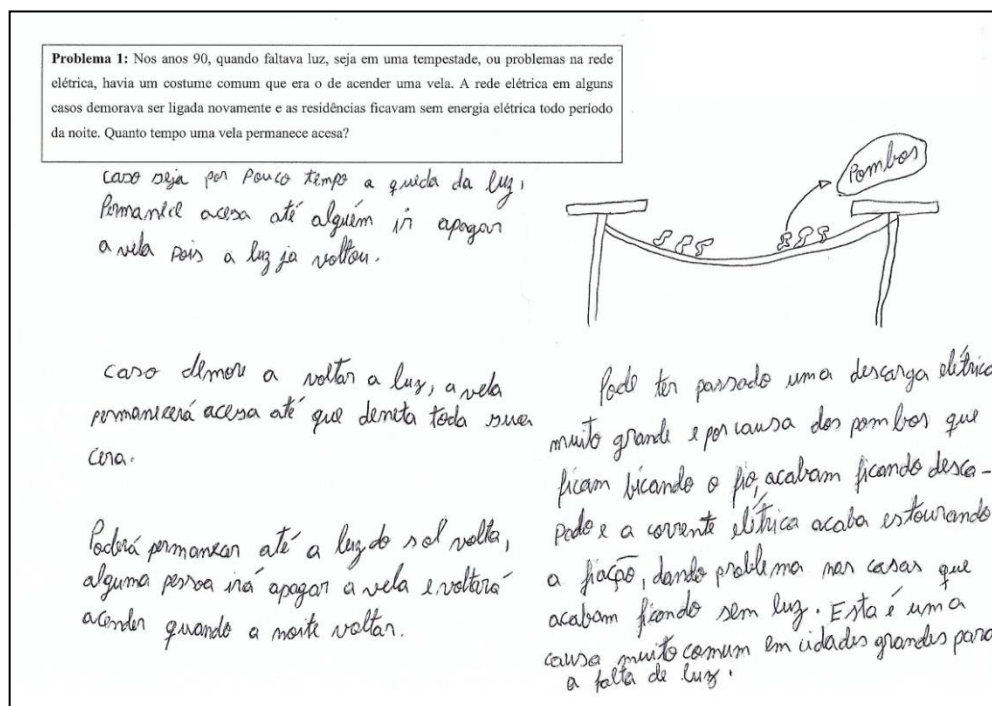 Problema 1: Nos anos 90, quando faltava luz, seja em uma tempestade, ou problemas na rede
elétrica, havia um costume comum que era o de acender uma vela. A rede elétrica em alguns
casos demorava ser ligada novamente e as residências ficavam sem energia elétrica todo período
da noite. Quanto tempo uma vela permanece acesa?
caso seja por pouco tempo a queda da luz,
Permanece acesa até alguém ir apagar
a vela pois a luz ja voltou.
caso demore a voltar a luz, a vela
permanecerá acesa até que derreta toda sua
cera.
Poderá permanecer até a luz do sol volta,
alguma pessoa irá apagar a vela e voltará
acender quando a noite voltar.
Pombos
Pode ter passado uma descarga elétrica
muito grande e por causa dos pombos que
ficam bicando o fio, acabam ficando desca-
pado e a corrente elétrica acaba estourando
a fiação, dando problema nas casas que
acabam ficando sem luz. Esta é uma
causa muito comum em cidades grandes para
a falta de luz.